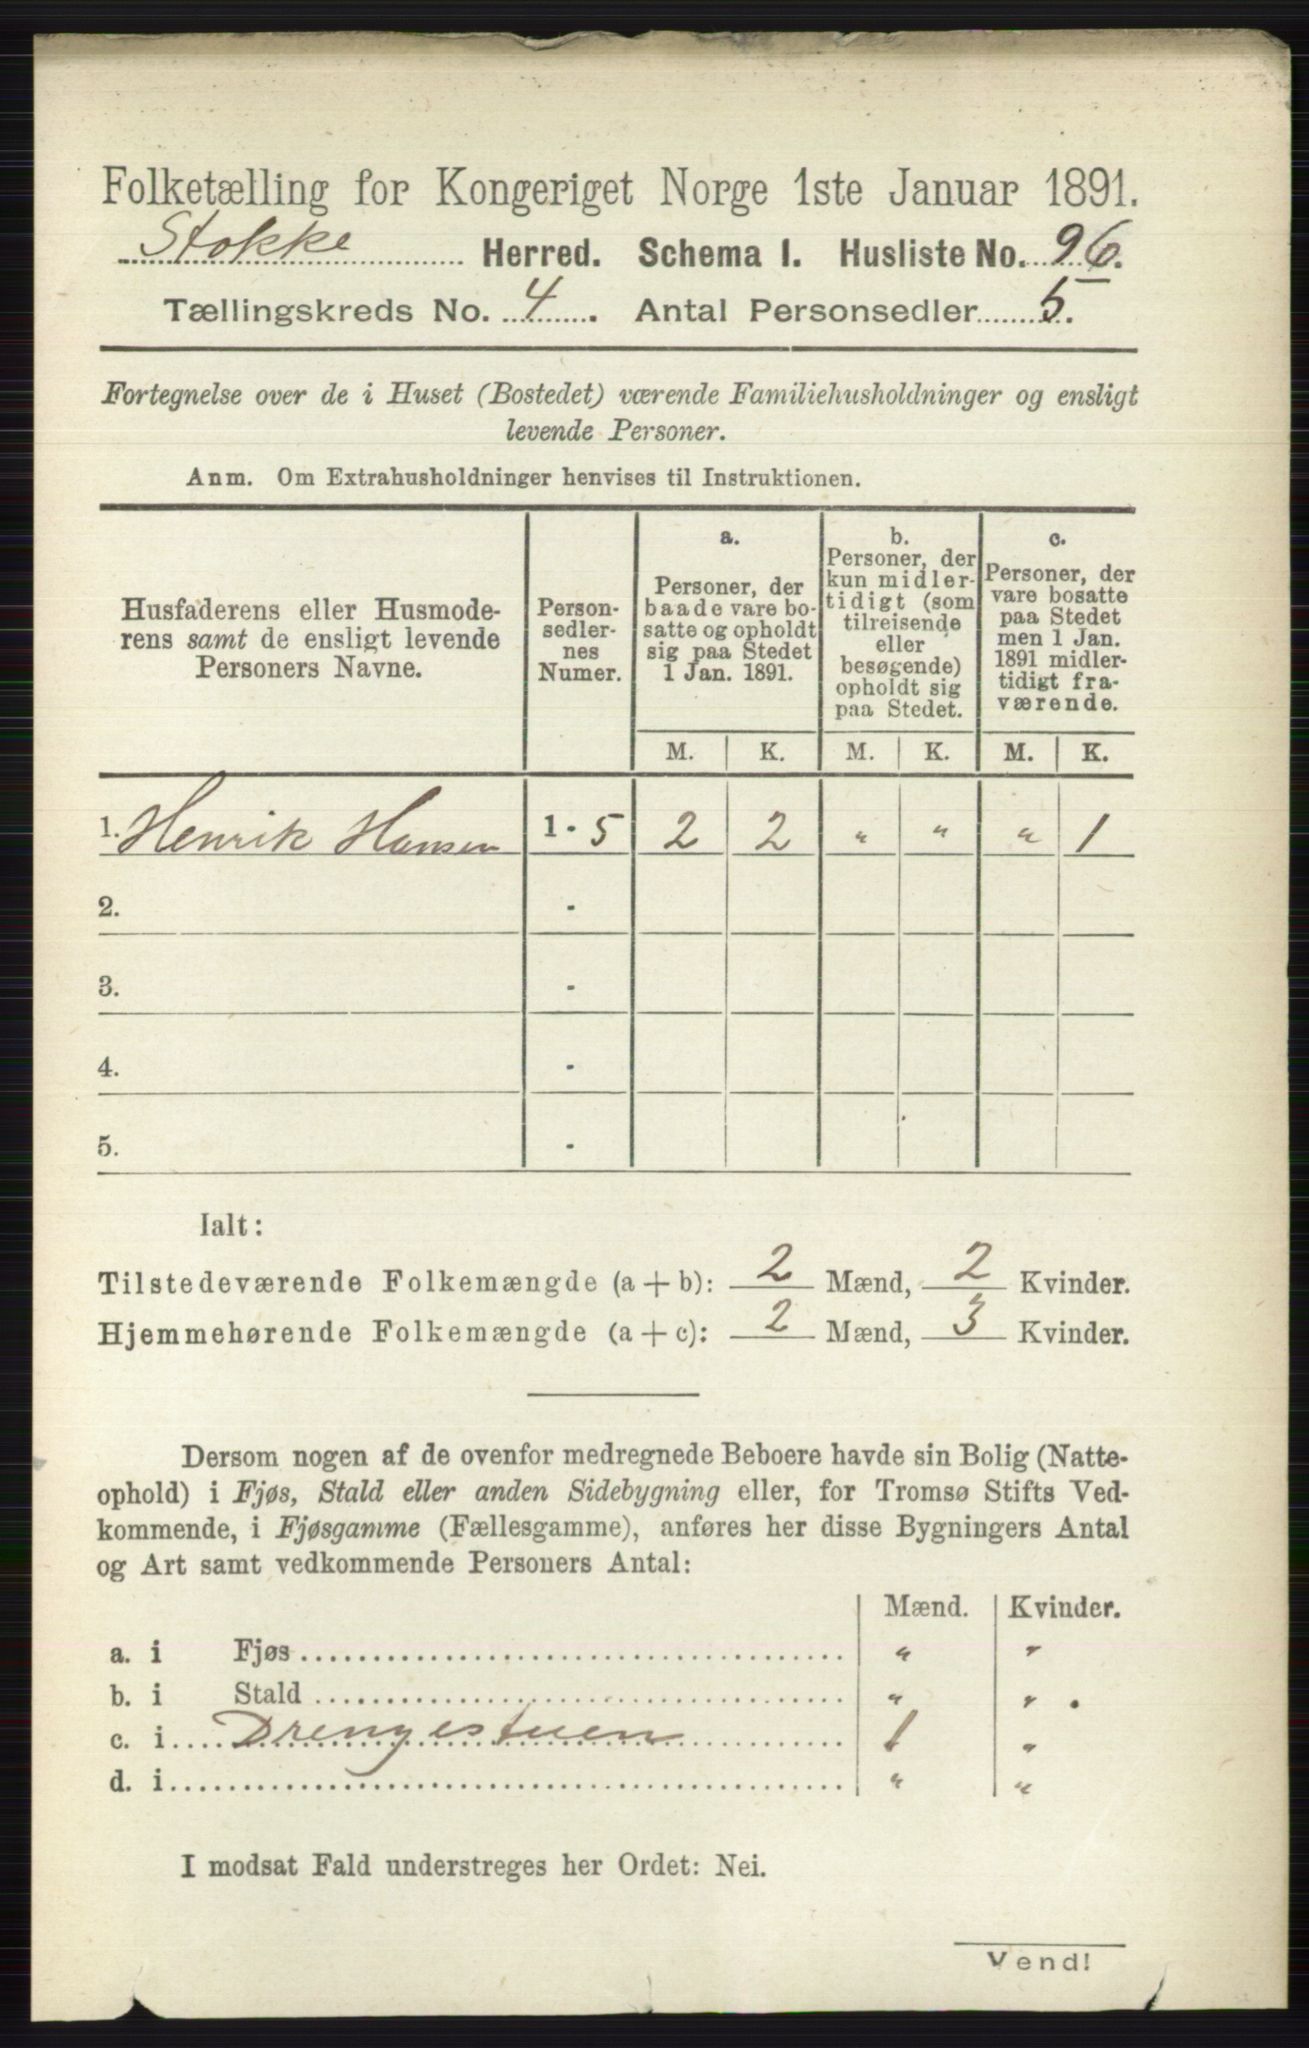 Folketælling for Kongeriget Norge 1ste Januar 1891.
Stokke Herred. Schema I. Husliste No. 96.
Tællingskreds No. 4. Antal Personsedler 5.
Fortegnelse over de i Huset (Bostedet) værende Familiehusholdninger og ensligt
levende Personer.
Anm. Om Extrahusholdninger henvises til Instruktionen.
Husfaderens eller Husmode-
rens samt de ensligt levende
Personers Navne.
Person-
sedler-
nes
Numer.
a.
Personer, der
baade vare bo-
satte og opholdt
sig paa Stedet
1 Jan. 1891.
b.
Personer, der
kun midler-
tidigt (som
tilreisende
eller
besøgende)
opholdt sig
paa Stedet.
c.
Personer, der
vare bosatte
paa Stedet
men 1 Jan.
1891 midler-
tidigt fra-
værende.
M. K. M. K. M. K.
1. Henrik Hansen 1 - 5 2 2 " " " 1
2. -
3. -
4. -
5. -
Ialt:
Tilstedeværende Folkemængde (a + b): 2 Mænd, 2 Kvinder.
Hjemmehørende Folkemængde (a + c): 2 Mænd, 3 Kvinder.
Dersom nogen af de ovenfor medregnede Beboere havde sin Bolig (Natte-
ophold) i Fjøs, Stald eller anden Sidebygning eller, for Tromsø Stifts Ved-
kommende, i Fjøsgamme (Fællesgamme), anføres her disse Bygningers Antal
og Art samt vedkommende Personers Antal:
Mænd. Kvinder.
a. i Fjøs " "
b. i Stald " "
c. i Drengestuen 1 "
d. i " "
I modsat Fald understreges her Ordet: Nei.
Vend!